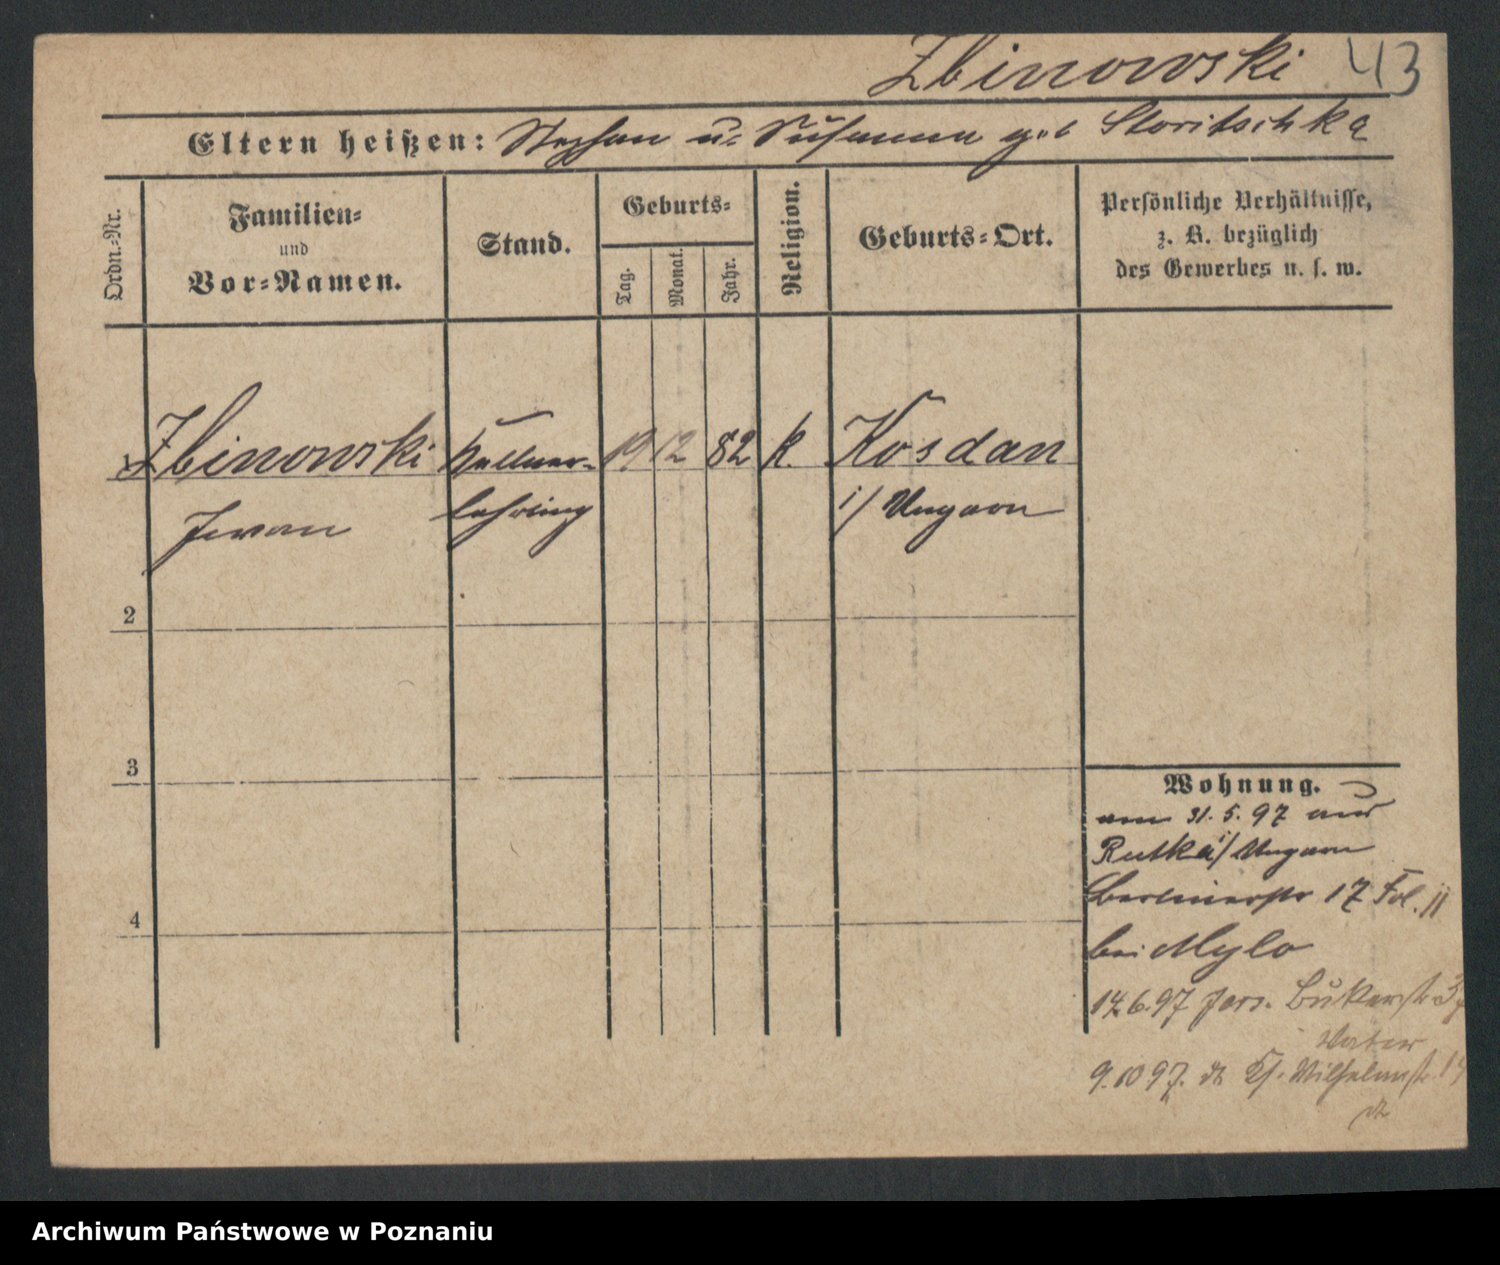 Zbinowski 43
Eltern heißen: Stephan u. Susanna geb Storitschka
Ordn.=Nr.
Familien=
und
Vor=Namen.
Stand.
Geburts=
Tag.
Monat.
Jahr.
Religion.
Geburts=Ort.
Persönliche Verhältnisse,
z. B. bezüglich
des Gewerbes u. s. w.
Zbinowski Kellner- 19 12 82 k. Kosdan
Iwan lehrling i/ Ungarn
2
3
4
Wohnung.
am 31.5.97 aus
Rutka i/ Ungarn
Berlinerstr 17 Fol. II
bei Mylo
14.6.97 Bukerstr
Vater
9.10 97. Wilhelmstr.
Archiwum Państwowe w Poznaniu